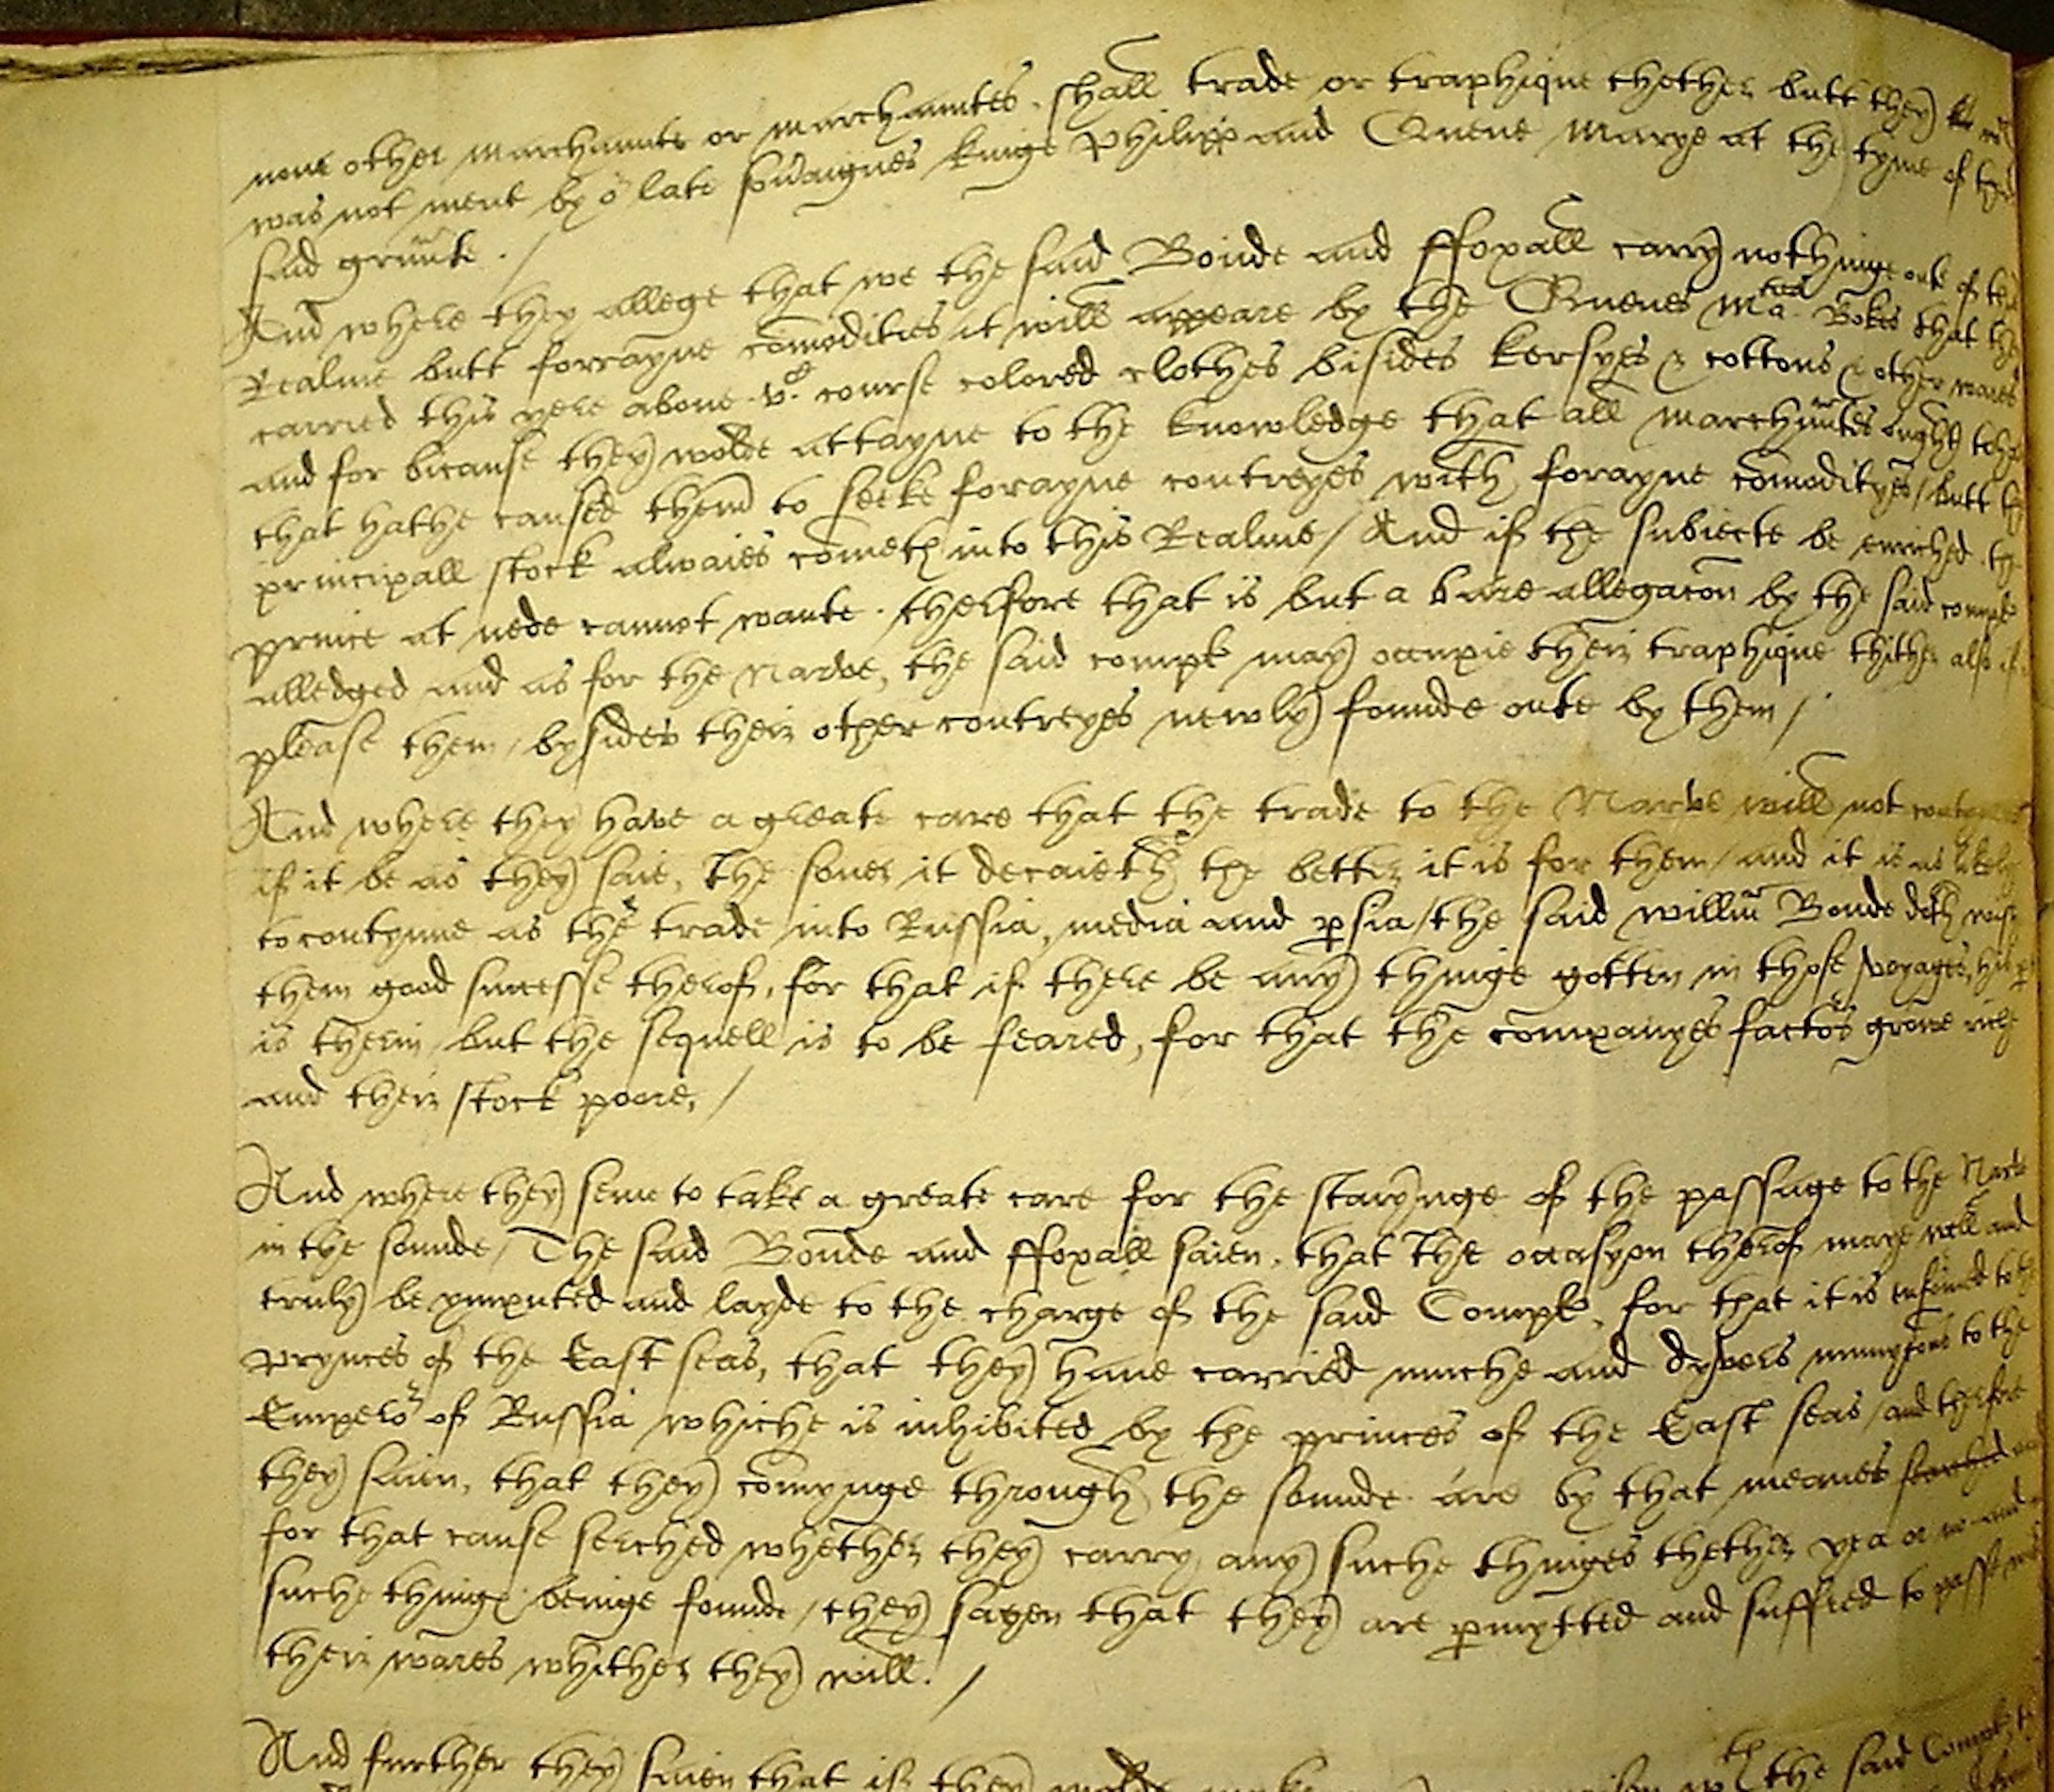 none other marchaunte or marchauntes shall trade or traphique thether butt they
was not ment by oʳ late sov̄aignes kinge Philipp and Quene Marye at the tyme of
said graunte . /
And where they allege that we the said Bonde and ffoxall carry nothinge oute of
Realme butt forrayne cōmodities it will appeare by the Quenes Maᵗᵉˢ Bokes that
carried this yere above .v.ᶜ course colored clothes bisides kersyes & cottons & other wares
and for bicause they wolde attayne to the knowledge that all marchauntes ought
that hathe caused them to seeke forayne contreyes with forayne cōmodityes / butt
principall stock alwaies cōmeth into this Realme / And if the subiecte be enriched
prince at nede cannot wante . therfore that is but a bare allegacōn by the said
alledged and as for the Narve, the said comp̄ may occupie their traphique thither also
please them / bysides their other contreyes newly founde oute by them /
And where they have a greate care that the trade to the Narve will not
if it be as they saie, The soner it decaieth the better it is for them / and it is as likely
to contynue as the trade into Russia, media and ꝑsia / the said willm̄ Bonde doth
them good successe therof, for that if there be any thinge gotten in those voyages, his
is therin / but the sequell is to be feared, for that the cōmpanyes factōs growe riche
and their stock poore, /
And where they seme to take a greate care for the stayinge of the passage to the Narve
in the sounde / The said Bonde and ffoxall saien, that the occasyon therof maye well and
truly be ymputed and layde to the charge of the said Comp̄, for that it is enformed to
prynces of the East seas, that they have carried muche and dyvers munycōns to the
Emperoʳ of Russia whiche is inhibited by the princes of the East seas / and therfore
they saien, that they cōmynge through the sounde are by that meanes
for that cause serched whether they carry any suche thinges thether yea or no and
suche things beinge founde / they sayen that they are ꝑmytted and suffred to passe
their wares whither they will. /
And further they saien that if they wolde make the said